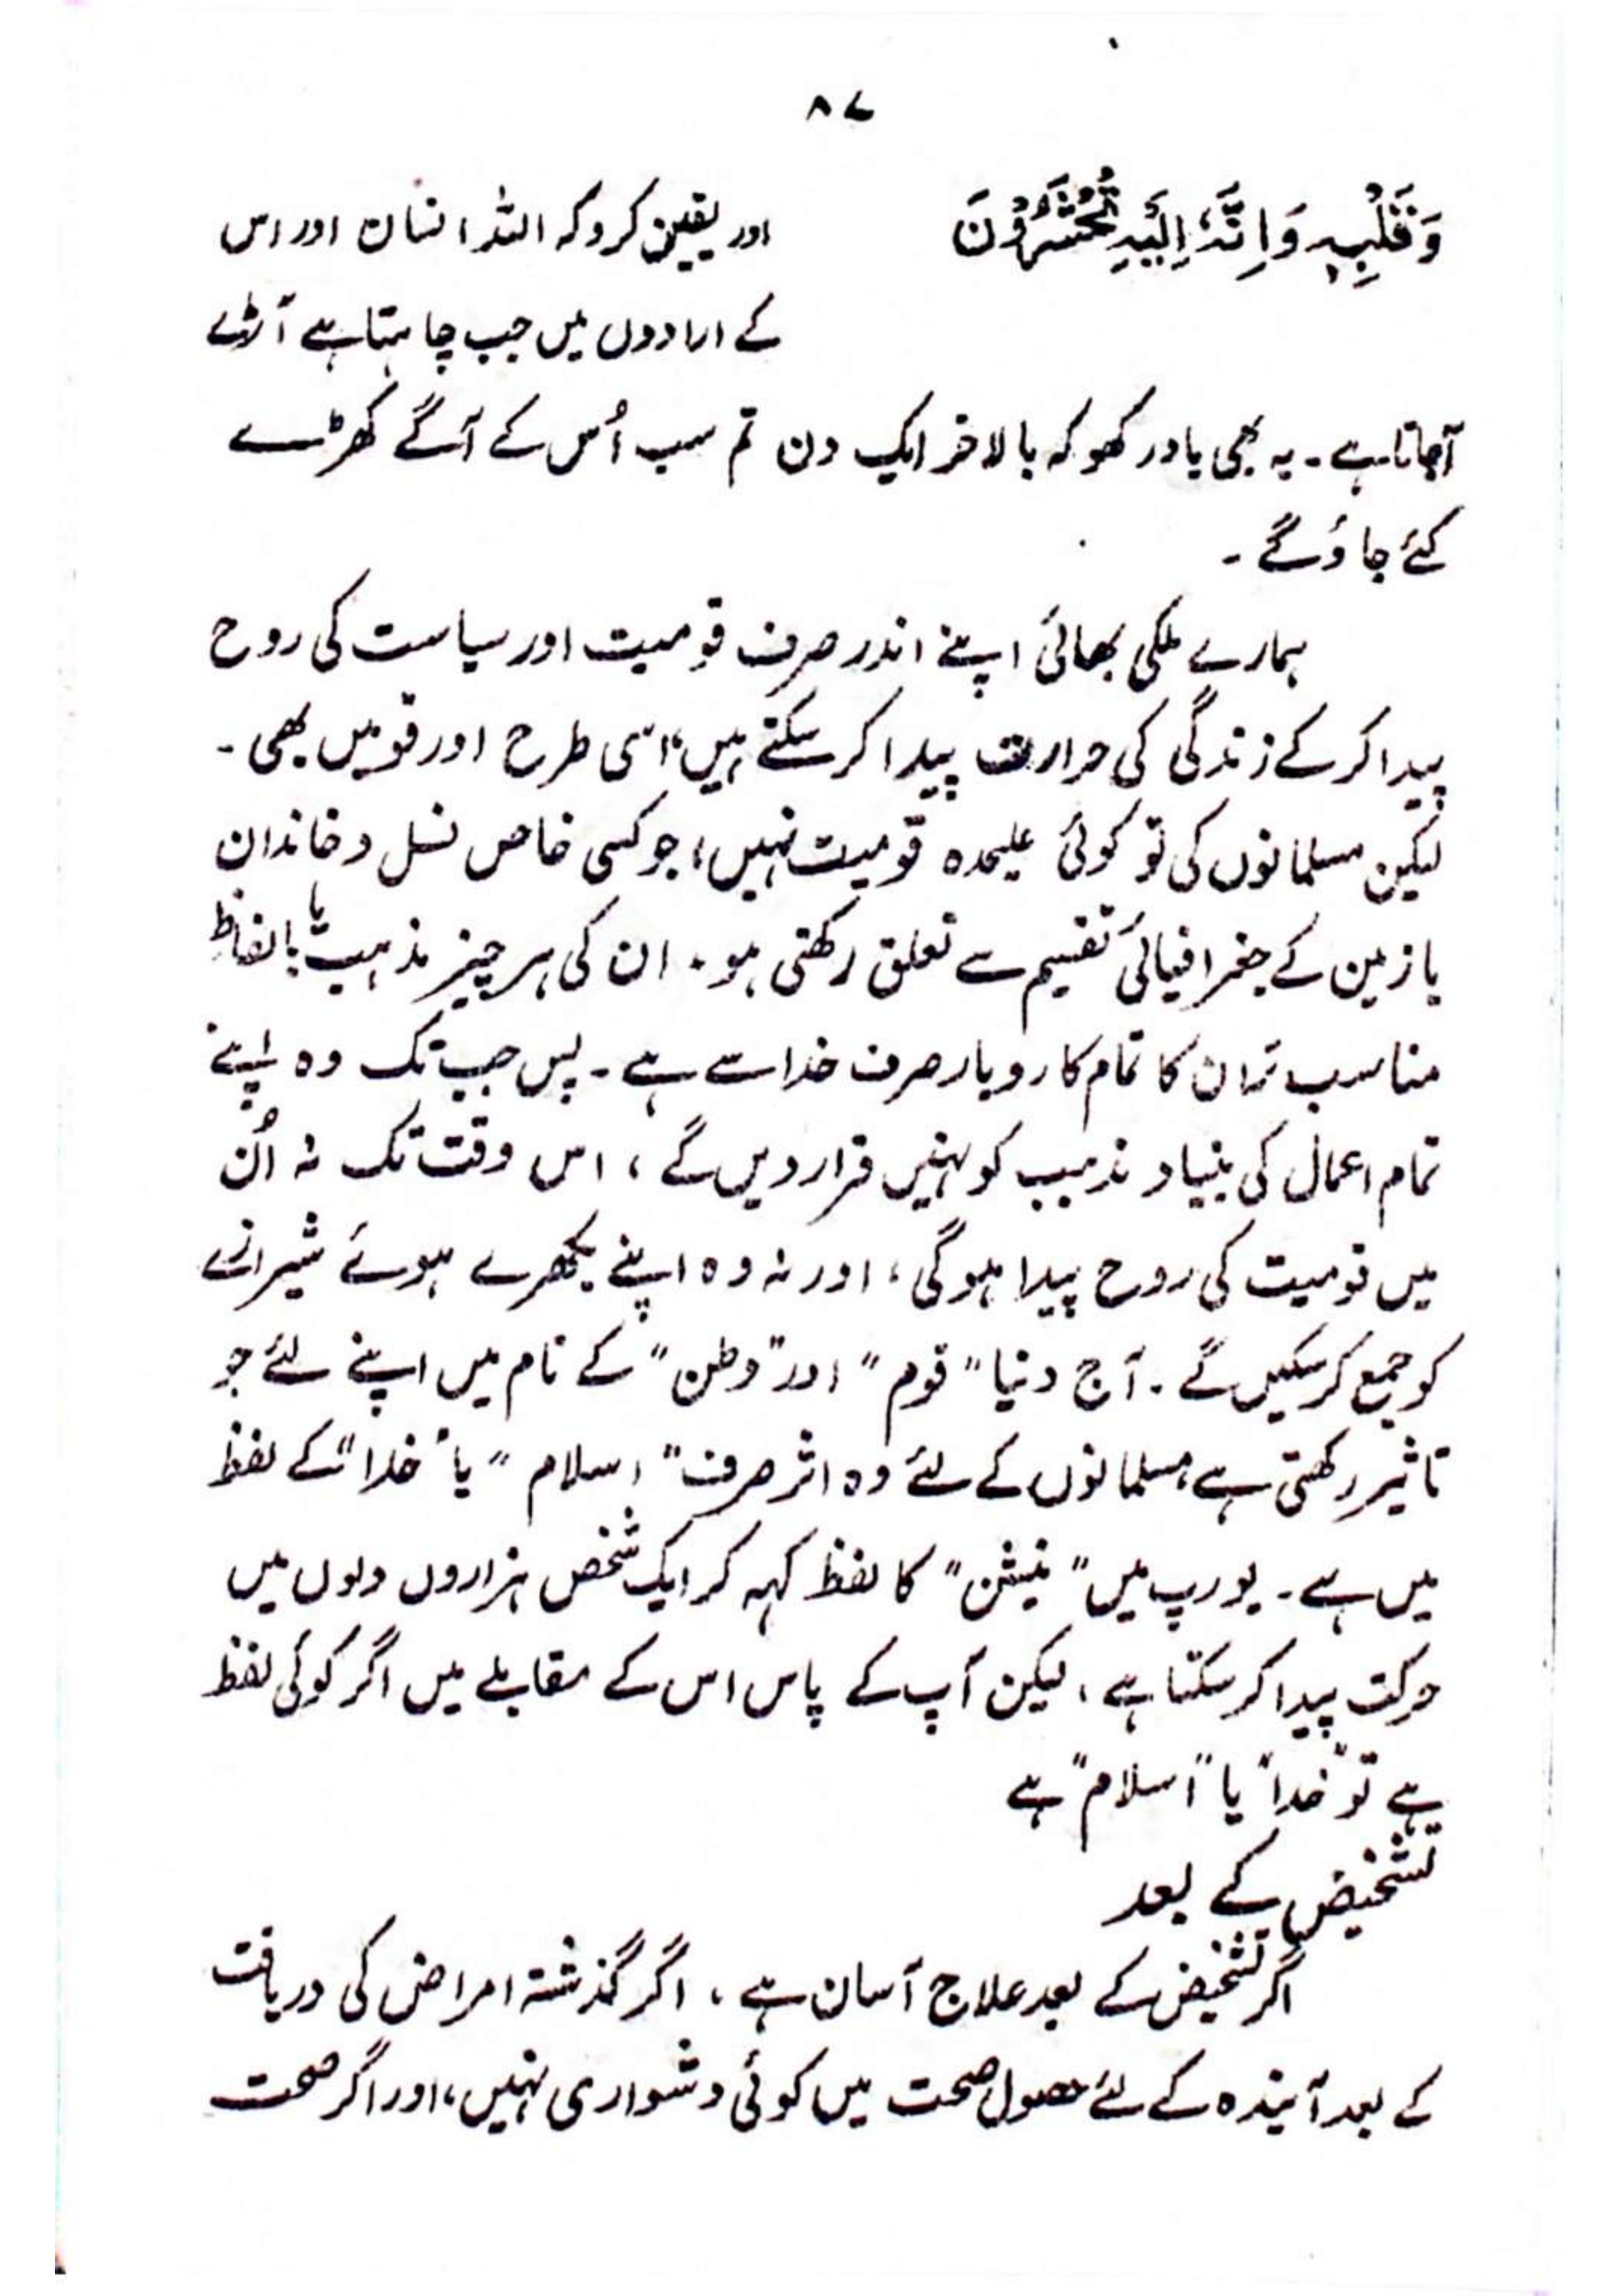 ۸۷
وَقَلْبِهٖ وَاِنَّهٗ اِلَیْهِ تُحْشَرُوْنَ
اور یقین کرو کہ اللہ انسان اور اس
کے ارادوں میں جب چاہتا ہے آڑے
آجاتا ہے۔ یہ بھی یاد رکھو کہ بالاخر ایک دن تم سب اُس کے آگے کھڑے
کئے جاؤگے۔
ہمارے ملکی بھائی اپنے اندر صرف قومیت اور سیاست کی روح
پیدا کر کے زندگی کی حرارت پیدا کر سکتے ہیں، اسی طرح اور قومیں بھی۔
لیکن مسلمانوں کی تو کوئی علیحدہ قومیت نہیں، جو کسی خاص نسل و خاندان
یا زمین کے جغرافیائی تقسیم سے تعلق رکھتی ہو۔ ان کی ہر چیز مذہب یا بالفاظ
مناسب تر ان کا تمام کاروبار صرف خدا سے ہے۔ پس جب تک وہ اپنے
تمام اعمال کی بنیاد مذہب کو نہیں قرار دیں گے، اس وقت تک نہ اُن
میں قومیت کی روح پیدا ہوگی، اور نہ وہ اپنے بکھرے ہوئے شیرازے
کو جمع کر سکیں گے۔ آج دنیا "قوم" اور "وطن" کے نام میں اپنے لئے جو
تاثیر رکھتی ہے، مسلمانوں کے لئے وہ اثر صرف "اسلام" یا "خدا" کے لفظ
میں ہے۔ یورپ میں "نیشن" کا لفظ کہہ کر ایک شخص ہزاروں دلوں میں
حرکت پیدا کر سکتا ہے، لیکن آپ کے پاس اس کے مقابلے میں اگر کوئی لفظ
ہے تو "خدا" یا "اسلام" ہے
تشخیص کے بعد
اگر تشخیص کے بعد علاج آسان ہے، اگر گذشتہ امراض کی دریافت
کے بعد آیندہ کے لئے حصول صحت میں کوئی دشواری نہیں، اور اگر صحت